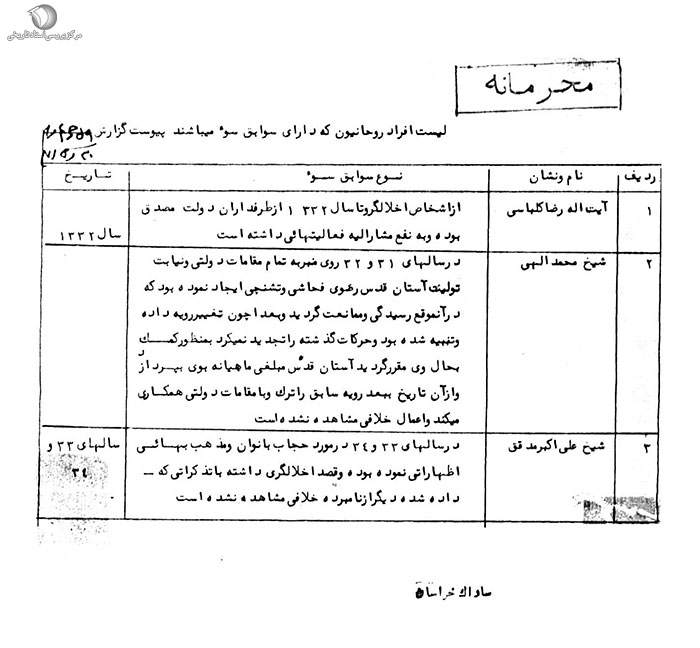 مرکز بررسی اسناد تاریخی
محرمانه
لیست افراد روحانیون که دارای سوابق سوء میباشند پیوست گزارش
ردیف نام ونشان نوع سوابق سوء تاریخ
۱ آیت اله رضاکلباسی ازاشخاص اخلالگروتاسال ۱۳۳۲ ازطرفداران دولت مصدق
بوده وبه نفع مشارالیه فعالیتهائی داشته است سال ۱۳۳۲
۲ شیخ محمدالهی درسالهای ۳۱ و ۳۲ روی منبربه تمام مقامات دولتی ونیابت
تولیت آستان قدس رضوی فحاشی وتشنجی ایجاد نموده بود که
درآنموقع رسیدگی وممانعت گردید وبعداچون تغییررویه داده
وتنبیه شده بود وحرکات گذشته راتجدید نمیکرد بمنظورکمک
بحال وی مقررگردید آستان قدس مبلغی ماهیانه بوی بپردازد
وازآن تاریخ ببعد رویه سابق راترک وبامقامات دولتی همکاری
میکند واعمال خلافی مشاهده نشده است
۳ شیخ علی اکبرمدقق درسالهای ۳۳ و ۳۴ درمورد حجاب بانوان ومذهب بهائی سالهای ۳۳ و
اظهاراتی نموده بوده وقصد اخلالگری داشته باتذکراتی که ـ ۳۴
داده شده دیگرازنامبرده خلافی مشاهده نشده است
ساواک خراسان